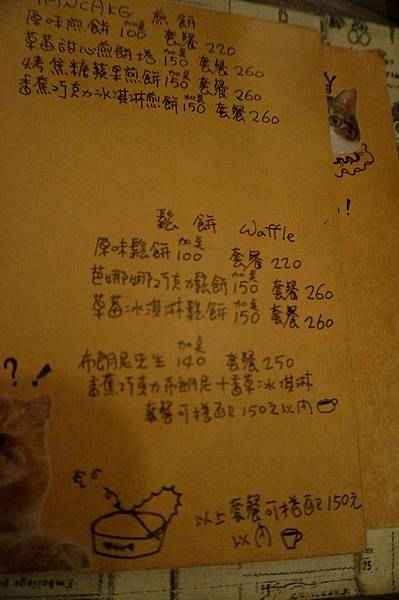 PANCAKE 煎餅
原味煎餅 加美 100 套餐 220
草莓甜心煎餅塔 加美 150 套餐 260
烤焦糖蘋果煎餅 加美 150 套餐 260
香蕉巧克力冰淇淋煎餅 加美 150 套餐 260
鬆餅 Waffle
原味鬆餅 加美 100 套餐 220
芭娜娜巧克力鬆餅 加美 150 套餐 260
草莓冰淇淋鬆餅 加美 150 套餐 260
布朗尼先生 加美 140 套餐 250
香蕉巧克力布朗尼+香草冰淇淋
套餐可搭配150元以內
?!
!
以上套餐可搭配150元
以內
25